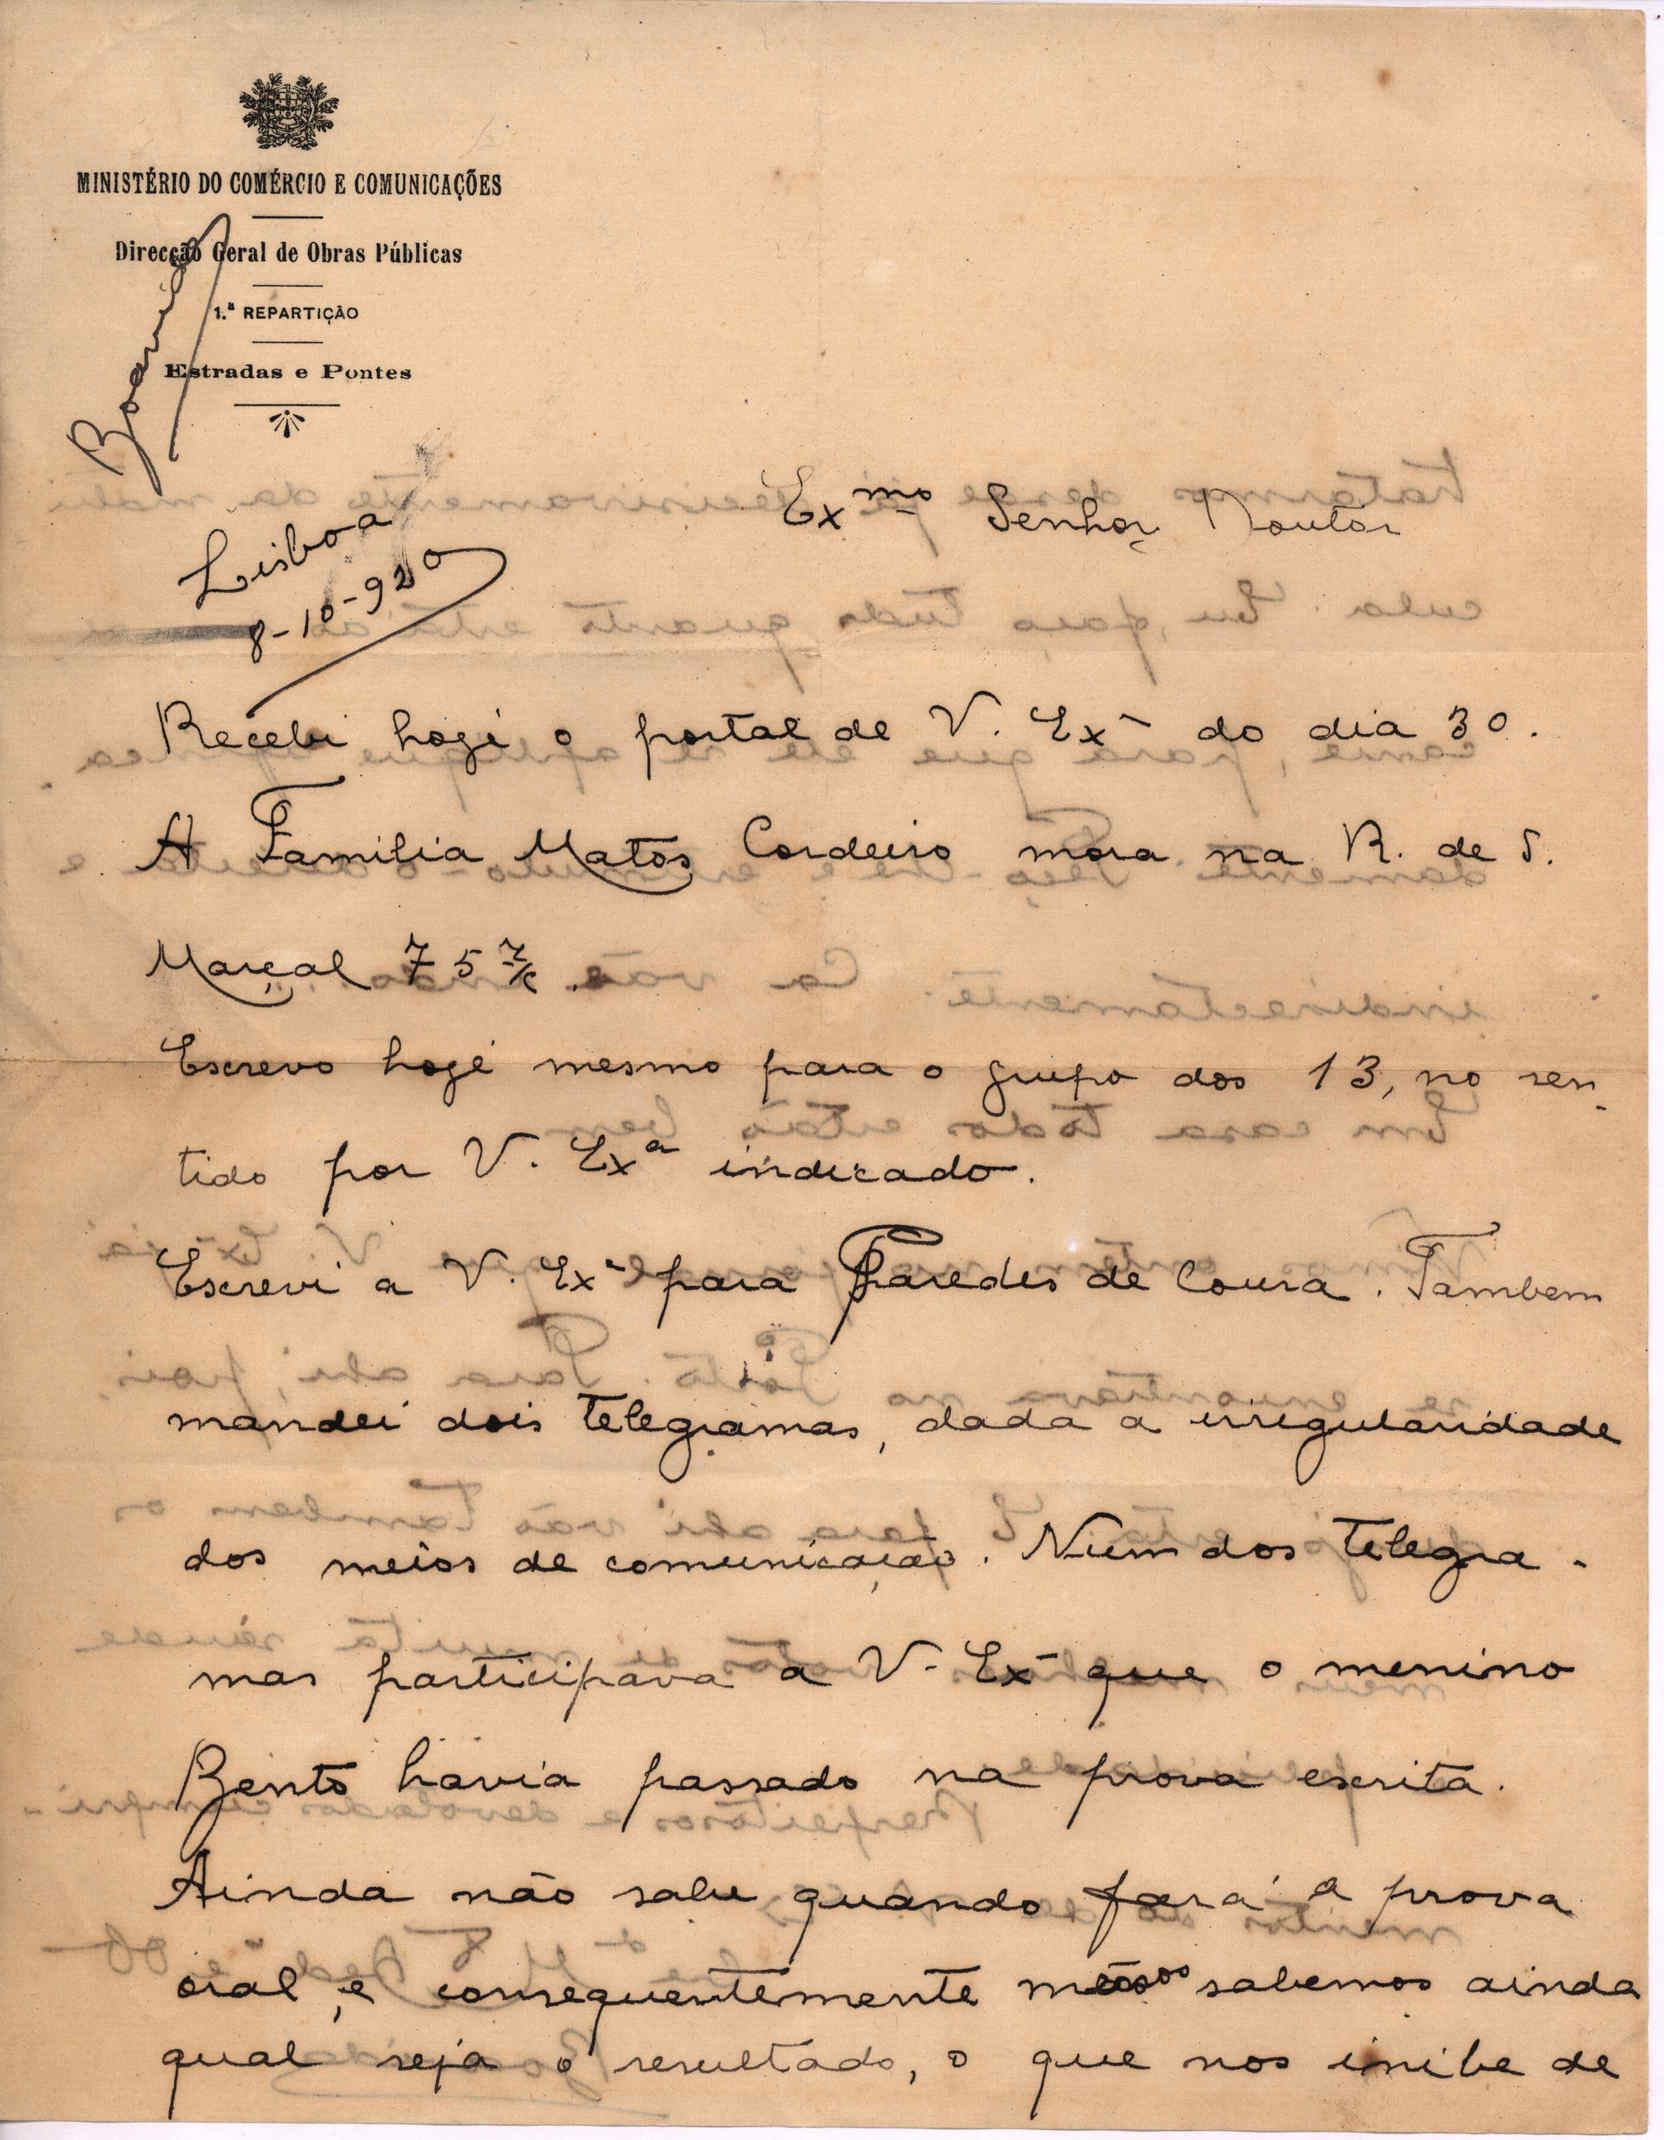 MINISTÉRIO DO COMÉRCIO E COMUNICAÇÕES
Direcção Geral de Obras Públicas
1.ª REPARTIÇÃO
Estradas e Pontes
Lisboa
8-10-920
Exmo Senhor Doutor
Recebi hoje o postal de V. Exª do dia 30.
A Familia Matos Cordeiro mora na R. de S.
Marçal 75
Escrevo hoje mesmo para o grupo dos 13, no sen-
tido por V. Exª indicado.
Escrevi a V. Exª para Paredes de Coura. Tambem
mandei dois telegramas, dada a irregularidade
dos meios de comunicação. Num dos telegra-
mas participava a V. Exª que o menino
Bento havia passado na prova escrita.
Ainda não sabe quando fará a prova
oral, e consequentemente não sabemos ainda
qual seja o resultado, o que nos inibe de